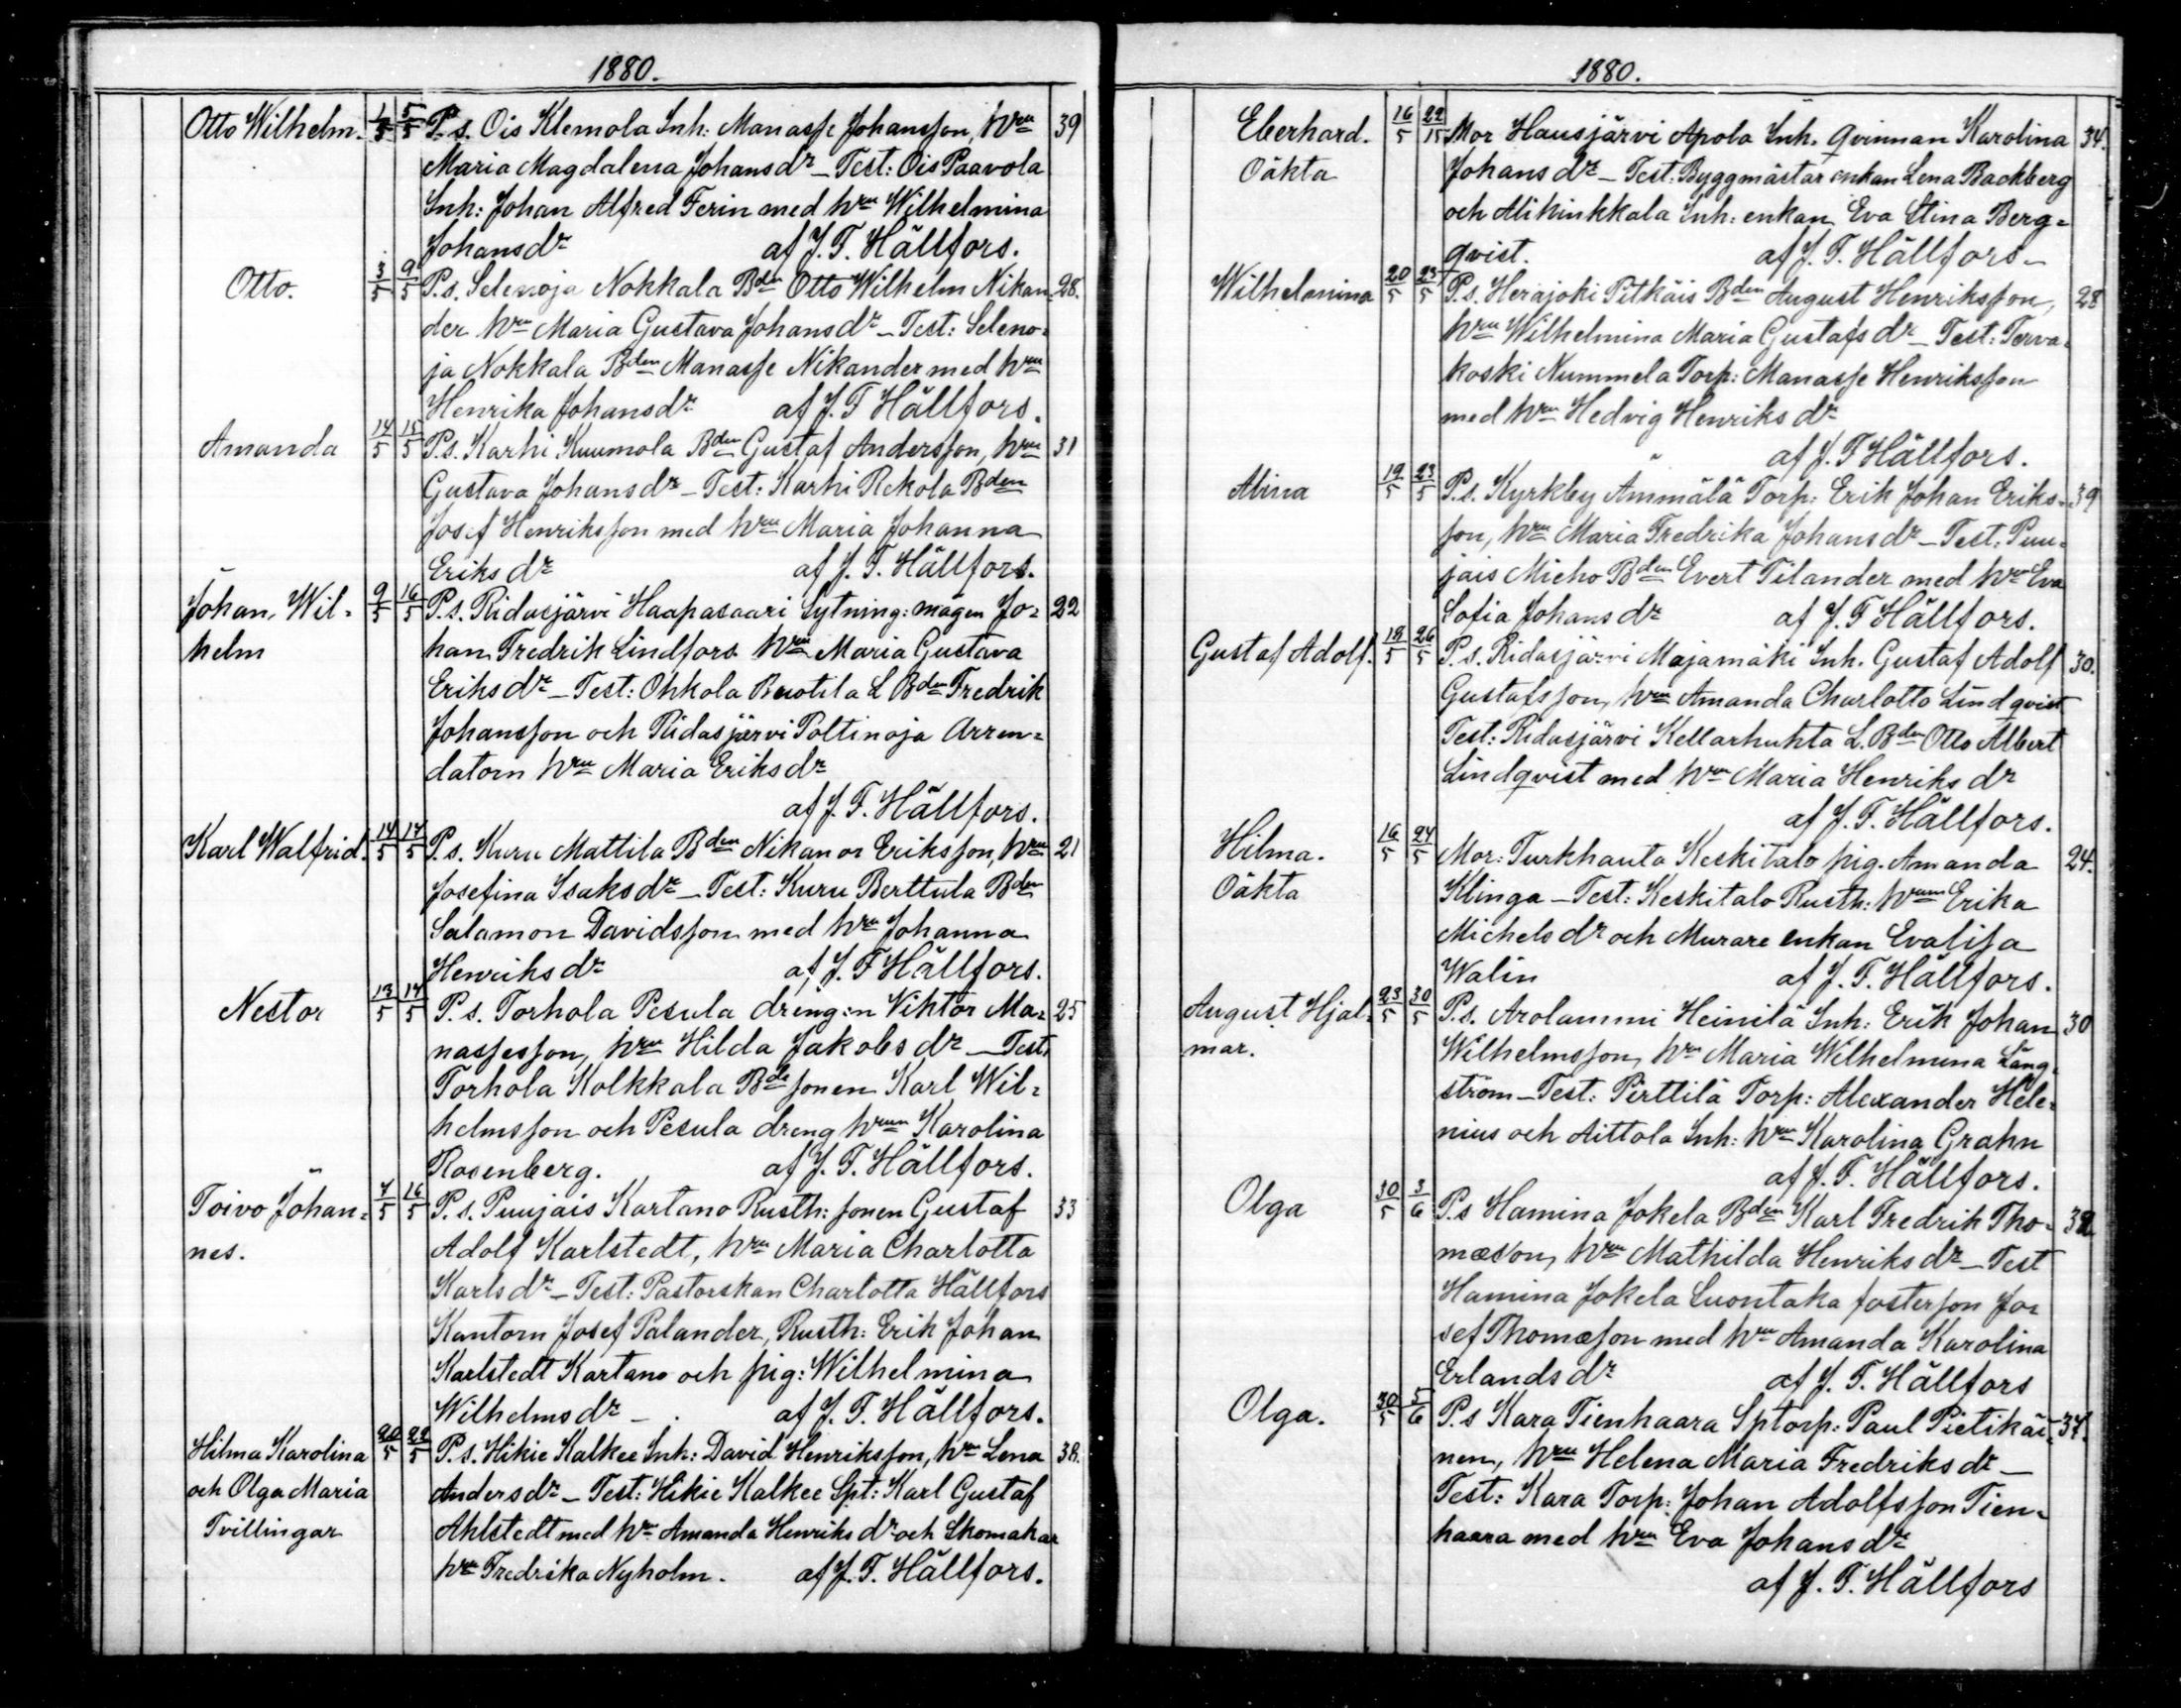 1880.
Otto Wilhelm. 1/5 5/5 P. s. Ois Klemola Inh: Manasse Johansson, hru 39
Maria Magdalena Johansdr – Test: Ois Paavola
Inh: Johan Alfred Ferin med hru Wilhelmina
Johansdr af J. F. Hällfors.
Otto. 3/5 9/5 P. s. Selenoja Nokkala Bden Otto Wilhelm Nikan- 28.
der hru Maria Gustava Johansdr – Test: Seleno-
ja Nokkala Bden Manasse Nikander med hru
Henrika Johansdr af J. F Hällfors.
Amanda 14/5 15/5 P. s. Karhi Kuumola Bden Gustaf Andersson, hru 31
Gustava Johansdr – Test: Karhi Rekola Bden
Josef Henriksson med hru Maria Johanna
Eriksdr af J. F. Hällfors.
Johan, Wil- 9/5 16/5 P. s. Ridasjärvi Haapasaari Sytning: mågen Jo- 22
helm han Fredrik Lindfors hru Maria Gustava
Eriksdr – Test: Ohkola L Bden Fredrik
Johansson och Ridasjärvi Poltinoja Arren-
datorn hru Maria Eriksdr
af J. F. Hällfors.
Karl Walfrid. 14/5 17/5 P. s. Kuru Mattila Bden Nikanor Eriksson, hru 21
Josefina Isaksdr – Test: Kuru Berttula Bden
Salamon Davidsson med hru Johanna
Henriksdr af J. F Hällfors.
Nestor 13/5 17/5 P. s. Torhola Pesula dreng:n Viktor Ma- 25
nassesson, hru Hilda Jakobsdr – Test.
Torhola Kolkkala Bde sonen Karl Wil-
helmsson och Pesula dreng hrun Karolina
Rosenberg. af J. F. Hällfors.
Toivo Johan- 7/5 16/5 P. s. Puujais Kartano Rusth: sonen Gustaf 33
nes. Adolf Karlstedt, hru Maria Charlotta
Karlsdr – Test: Pastorskan Charlotta Hällfors
Kantorn Josef Palander, Rusth: Erik Johan
Karlstedt Kartano och pig: Wilhelmina
Wilhelmsdr – af J. F. Hällfors.
Hilma Karolina 20/5 22/5 P. s. Hikie Kalkee Inh: David Henriksson, hru Lena 38.
och Olga Maria Andersdr – Test: Hikie Kalkee Spt: Karl Gustaf
Tvillingar Ahlstedt med hru Amanda Henriksdr och Skomakar
hru Fredrika Nyholm. af J. F. Hällfors.
1880.
Eberhard. 16/5 22/15 Mor Hausjärvi Apola Inh. qvinnan Karolina 34.
Oäkta Johansdr – Test: Byggmästar enkan Lena Backberg
och Alikinkkala Inh: enkan Eva Stina Berg-
qvist. af J. F. Hällfors –
Wilhelmina 20/5 23/5 P. s. Herajoki Pitkäis Bden August Henriksson, 28
hru Wilhelmina Maria Gustafsdr – Test: Terva-
koski Nummela Torp: Manasse Henriksson
med hru Hedvig Henriksdr
af J. F Hällfors.
Alina 19/5 23/5 P. s. Kyrkby Ämmälä Torp: Erik Johan Eriks- 39
son, hru Maria Fredrika Johansdr – Test: Puu-
jais Micko Bden Evert Tilander med hru Eva
Sofia Johansdr af J. F Hällfors.
Gustaf Adolf. 18/5 26/5 P. s. Ridasjärvi Majamäki Inh. Gustaf Adolf 30.
Gustafsson, hru Amanda Charlotta Lindqvist
Test: Ridasjärvi Kellarhuhta L. Bden Otto Albert
Lindqvist med hru Maria Henriksdr
af J. F. Hällfors.
Hilma. 16/5 27/5 Mor: Turkhauta Keskitalo pig. Amanda 24.
Oäkta Klinga – Test: Keskitalo Rusth: hrun Erika
Michelsdr och Murare enkan Evalisa
Walin af J. F. Hällfors.
August Hjal- 23/5 30/5 P. s. Arolammi Heinilä Inh: Erik Johan 30
mar. Wilhelmsson, hru Maria Wilhelmina Läng-
ström – Test: Pirttilä Torp: Alexander Hele-
nius och Aittola Inh: hru Karolina Grahn
af J. F. Hällfors.
Olga 30/5 3/6 P. s Hamina Jokela Bden Karl Fredrik Tho-
mæson, hru Mathilda Henriksdr – Test
Hamina Jokela Luontaka fosterson Jo-
sef Thomæson med hru Amanda Karolina
Erlandsdr af J. F. Hällfors
Olga. 30/5 5/6 P. s Kara Tienhaara Sptorp: Paul Pietikäi- 34.
nen, hru Helena Maria Fredriksdr –
Test: Kara Torp: Johan Adolfsson Tien-
haara med hru Eva Johansdr
af J. F. Hällfors